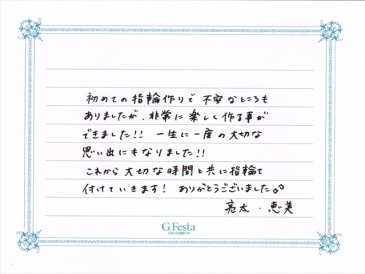 初めての指輪作りで不安なところも
ありましたが、非常に楽しく作る事が
できました!! 一生に一度の大切な
思い出にもなりました!!
これから大切な時間と共に指輪も
付けていきます! ありがとうございました。
亮太・恵美
G.Festa